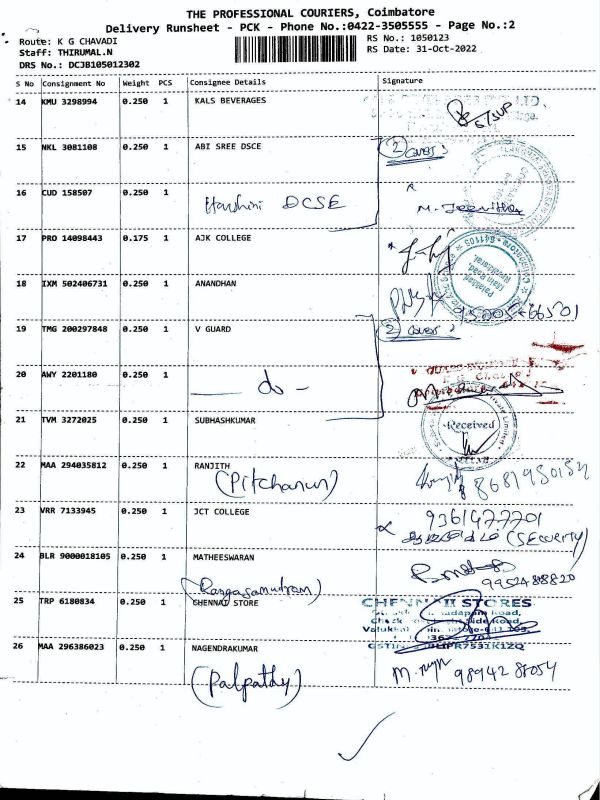 THE PROFESSIONAL COURIERS, Coimbatore
Delivery Runsheet - PCK - Phone No.:0422-3505555 - Page No.:2
Route: K G CHAVADI
RS No.: 1050123
Staff: THIRUMAL.N
RS Date: 31-Oct-2022
DRS No.: DCJB105012302
S No Consignment No Weight PCS Consignee Details Signature
14 KMU 3298994 0.250 1 KALS BEVERAGES
15 NKL 3081108 0.250 1 ABI SREE DSCE 2 cover
16 CUD 158507 0.250 1 Harshini DCSE M. Jeevitha
17 PRO 14098443 0.175 1 AJK COLLEGE
18 IXM 502406731 0.250 1 ANANDHAN
19 TMG 200297848 0.250 1 V GUARD 2 cover
20 AWY 2201180 0.250 1 — do —
21 TVM 3272025 0.250 1 SUBHASHKUMAR Received
22 MAA 294035812 0.250 1 RANJITH
(Pitchanur)
23 VRR 7133945 0.250 1 JCT COLLEGE 9361477701
(Security)
24 BLR 9000018105 0.250 1 MATHEESWARAN
(Rangasamudram) 9952488820
25 TRP 6180834 0.250 1 CHENNAI STORE CHENNAI STORES
26 MAA 296386023 0.250 1 NAGENDRAKUMAR
(Palpathy) 9894288054